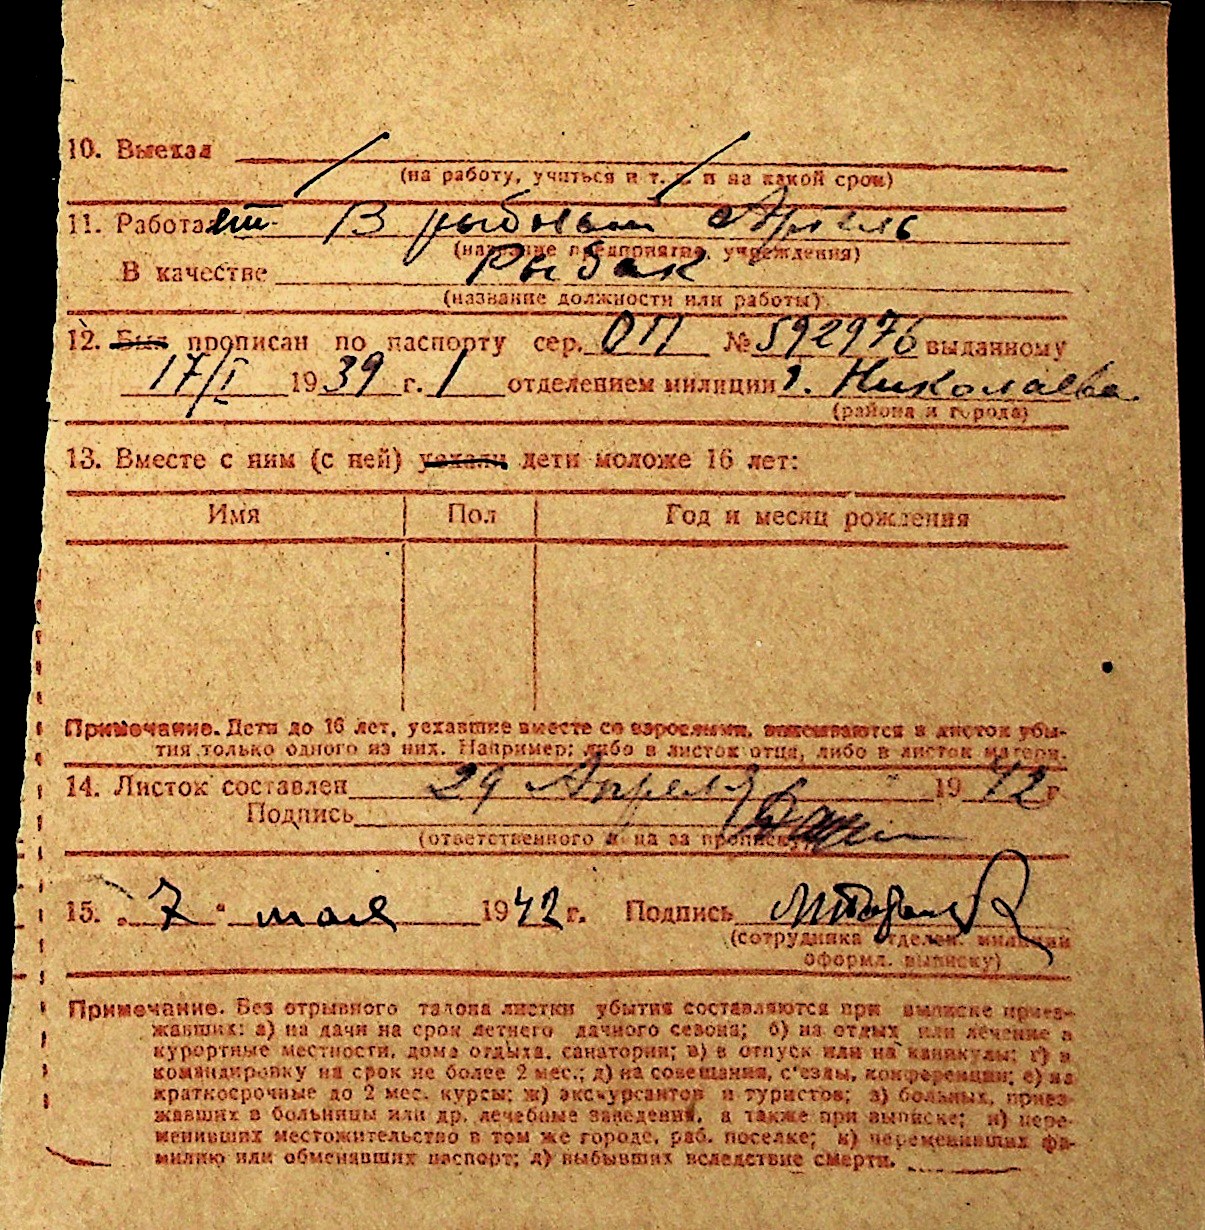 10. Выехал
(на работу, учиться и т. д. и на какой срок)
11. Работает В рыбный Артель
(название предприятия, учреждения)
В качестве Рыбак
(название должности или работы)
12. Был прописан по паспорту сер. ОП № 592976 выданному
17/I 1939 г. 1 отделением милиции г. Николаева
(района и города)
13. Вместе с ним (с ней) уехали дети моложе 16 лет:
Имя Пол Год и месяц рождения
Примечание. Дети до 16 лет, уехавшие вместе со взрослыми, вписываются в листок убы-
тия только одного из них. Например: либо в листок отца, либо в листок матери.
14. Листок составлен 29 Апреля 1942 г
Подпись
(ответственного л-ца за прописку)
15. „7“ мая 1942 г. Подпись
(сотрудника отделен. милиции
оформл. выписку)
Примечание. Без отрывного талона листки убытия составляются при выписке приез-
жавших: а) на дачи на срок летнего дачного сезона; б) на отдых или лечение в
курортные местности, дома отдыха, санатории; в) в отпуск или на каникулы; г) в
командировку на срок не более 2 мес.; д) на совещания, с'езды, конференции; е) на
краткосрочные до 2 мес. курсы; ж) экскурсантов и туристов; з) больных, приез-
жавших в больницы или др. лечебные заведения, а также при выписке; и) пере-
менивших местожительство в том же городе, раб. поселке; к) переменивших фа-
милию или обменявших паспорт; л) выбывших вследствие смерти.